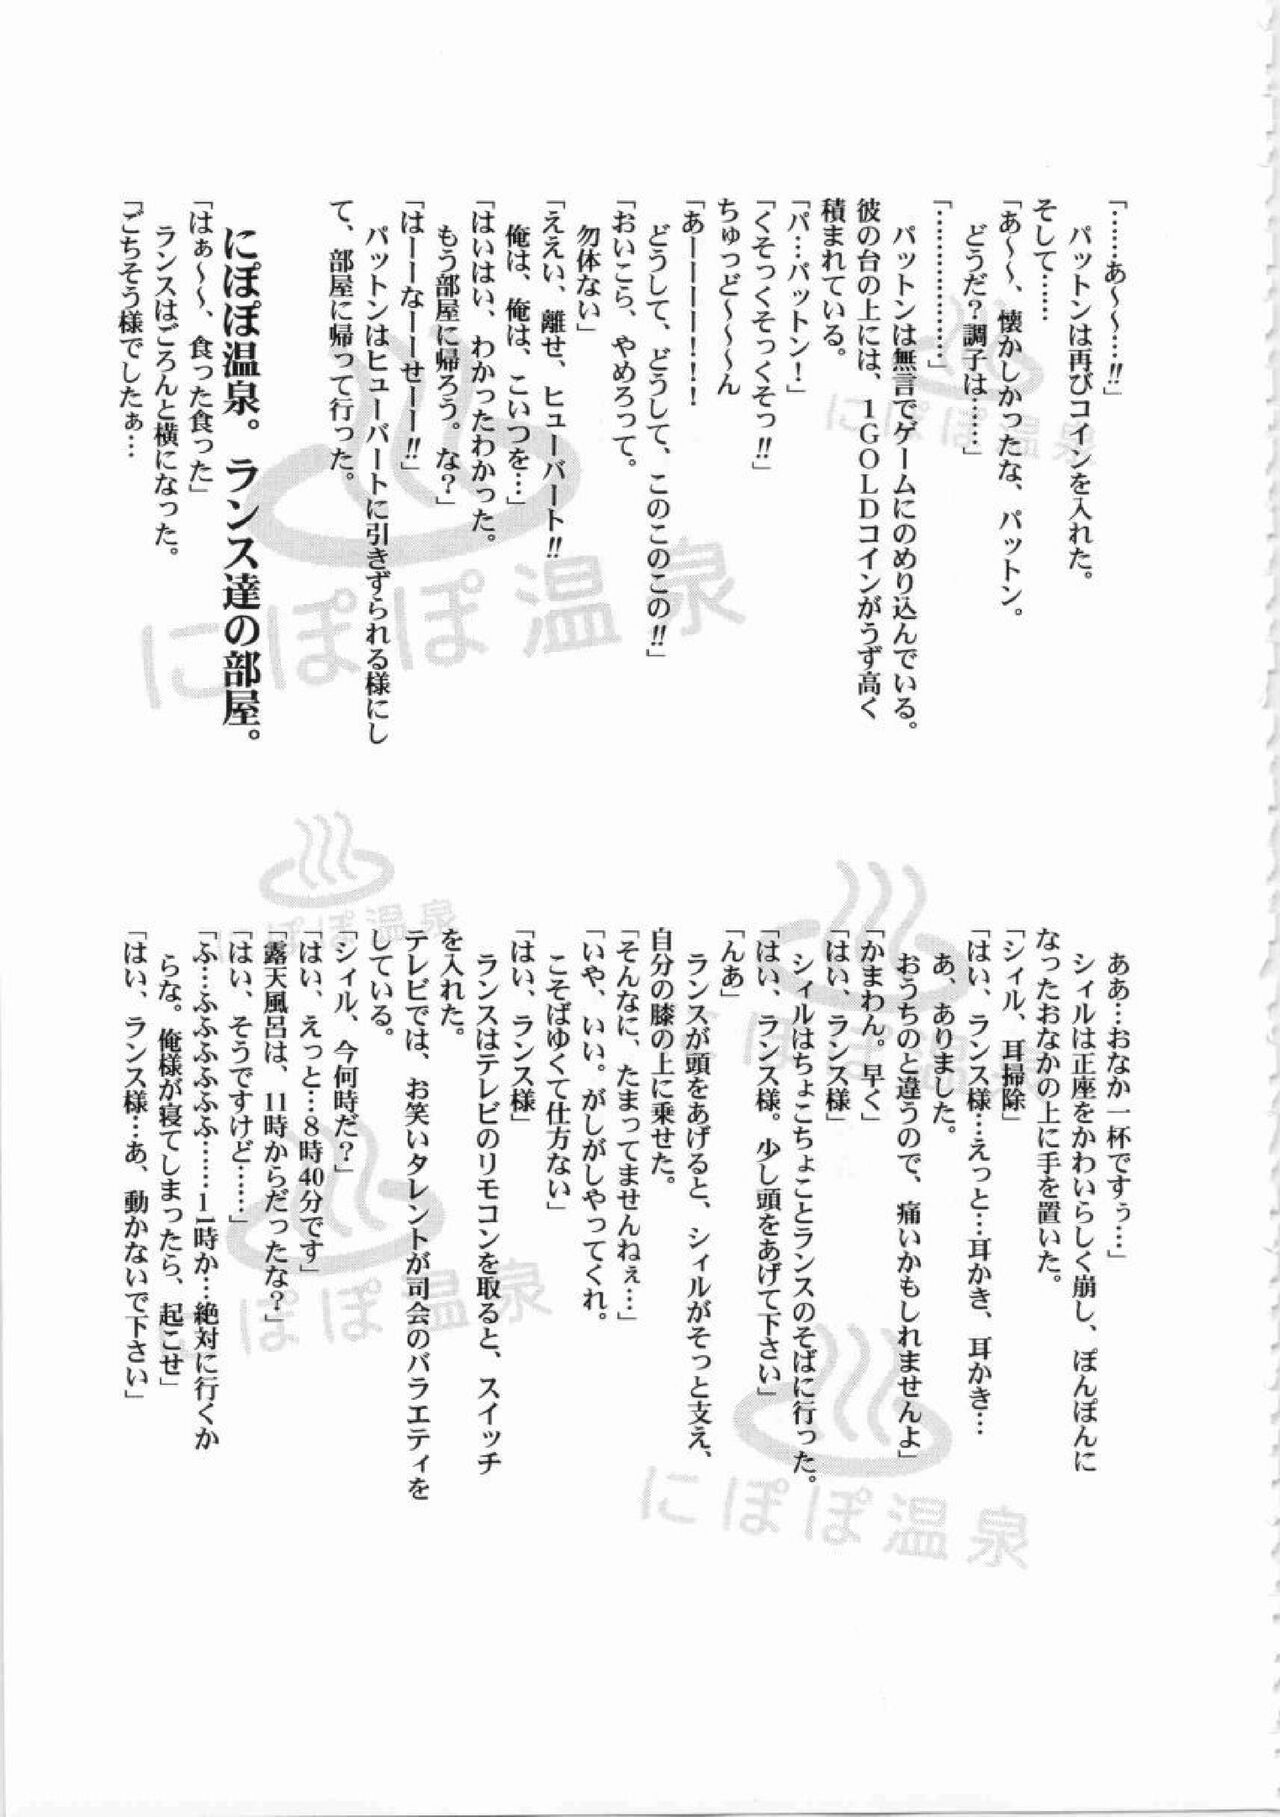 「……あ～～…!!」
パットンは再びコインを入れた。
そして……
「あ～～、懐かしかったな、パットン。
どうだ？調子は……」
「………………」
パットンは無言でゲームにのめり込んでいる。
彼の台の上には、1GOLDコインがうず高く
積まれている。
「パ…パットン！」
「くそっくそっくそっ!!」
ちゅっど～～～ん
「あーーーー！！！
どうして、どうして、このこのこの!!」
「おいこら、やめろって。
勿体ない」
「ええい、離せ、ヒューバート!!
俺は、俺は、こいつを…」
「はいはい、わかったわかった。
もう部屋に帰ろう。な？」
「はーーなーーせーー!!」
パットンはヒューバートに引きずられる様にし
て、部屋に帰って行った。
にぽぽ温泉。ランス達の部屋。
「はぁ～～、食った食った」
ランスはごろんと横になった。
「ごちそう様でしたぁ…
ああ…おなか一杯ですぅ…」
シィルは正座をかわいらしく崩し、ぽんぽんに
なったおなかの上に手を置いた。
「シィル、耳掃除」
「はい、ランス様…えっと…耳かき、耳かき…
あ、ありました。
おうちのと違うので、痛いかもしれませんよ」
「かまわん。早く」
「はい、ランス様」
シィルはちょこちょことランスのそばに行った。
「はい、ランス様。少し頭をあげて下さい」
「んあ」
ランスが頭をあげると、シィルがそっと支え、
自分の膝の上に乗せた。
「そんなに、たまってませんねぇ…」
「いや、いい。がしがしやってくれ。
こそばゆくて仕方ない」
「はい、ランス様」
ランスはテレビのリモコンを取ると、スイッチ
を入れた。
テレビでは、お笑いタレントが司会のバラエティを
している。
「シィル、今何時だ？」
「はい、えっと…8時40分です」
「露天風呂は、11時からだったな？」
「はい、そうですけど……」
「ふ…ふふふふふふ……11時か…絶対に行くか
らな。俺様が寝てしまったら、起こせ」
「はい、ランス様…あ、動かないで下さい」
にぽぽ温泉
にぽぽ温泉
にぽぽ温泉
にぽぽ温泉
にぽぽ温泉
にぽぽ温泉